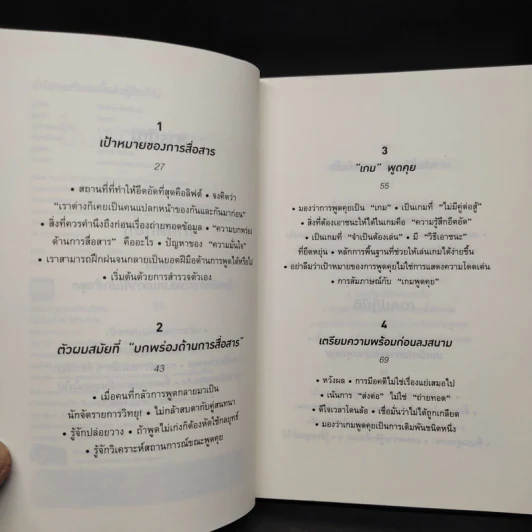 1
เป้าหมายของการสื่อสาร
27
• สถานที่ที่ทำให้อึดอัดที่สุดคือลิฟต์ • จงคิดว่า
"เราต่างก็เคยเป็นคนแปลกหน้าของกันและกันมาก่อน"
• สิ่งที่ควรคำนึงถึงก่อนเรื่องถ่ายทอดข้อมูล • "ความบกพร่อง
ด้านการสื่อสาร" คืออะไร • ปัญหาของ "ความมั่นใจ"
• เราสามารถฝึกฝนจนกลายเป็นยอดฝีมือด้านการพูดได้หรือไม่
• เริ่มต้นด้วยการสำรวจตัวเอง
2
ตัวผมสมัยที่ "บกพร่องด้านการสื่อสาร"
43
• เมื่อคนที่กลัวการพูดกลายมาเป็น
นักจัดรายการวิทยุ! • ไม่กล้าสบตากับคู่สนทนา
• รู้จักปล่อยวาง • ถ้าพูดไม่เก่งก็ต้องหัดใช้กลยุทธ์
• รู้จักวิเคราะห์สถานการณ์ขณะพูดคุย
3
"เกม" พูดคุย
55
• มองว่าการพูดคุยเป็น "เกม" • เป็นเกมที่ "ไม่มีคู่ต่อสู้"
• สิ่งที่ต้องเอาชนะให้ได้ในเกมคือ "ความรู้สึกอึดอัด"
• เป็นเกมที่ "จำเป็นต้องเล่น" • มี "วิธีเอาชนะ"
ที่ยืดหยุ่น • หลักการพื้นฐานที่ช่วยให้เล่นเกมได้ง่ายขึ้น
• อย่าลืมว่าเป้าหมายของการพูดคุยไม่ใช่การแสดงความโดดเด่น
• การสัมภาษณ์กับ "เกมพูดคุย"
4
เตรียมความพร้อมก่อนลงสนาม
69
• หวังผล • การมีอคติไม่ใช่เรื่องแย่เสมอไป
• เน้นการ "ส่งต่อ" ไม่ใช่ "ถ่ายทอด"
• ดีใจเวลาโดนล้อ • เชื่อมั่นว่าไม่ได้ถูกเกลียด
• มองว่าเกมพูดคุยเป็นการเดิมพันชนิดหนึ่ง